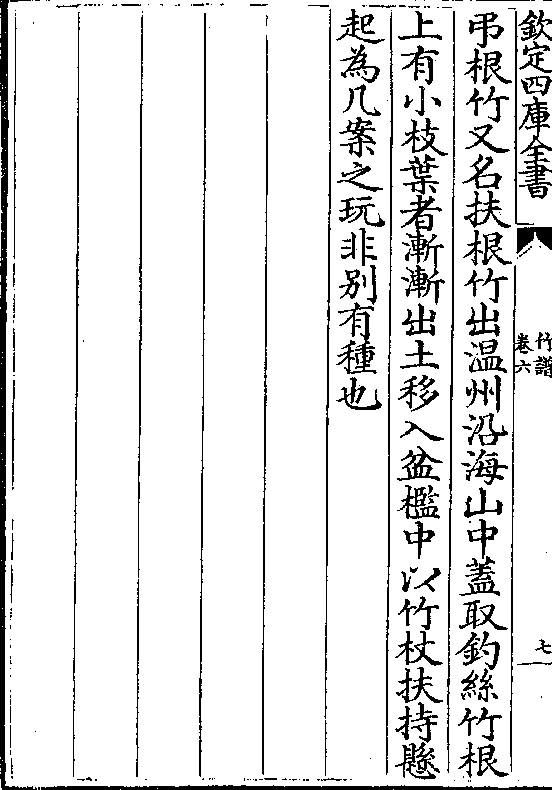 欽定四庫全書
竹譜
卷六
七
弔根竹又名扶根竹出温州沿海山中蓋取釣絲竹根
上有小枝葉者漸漸出土移入盆檻中以竹杖扶持懸
起為几案之玩非別有種也